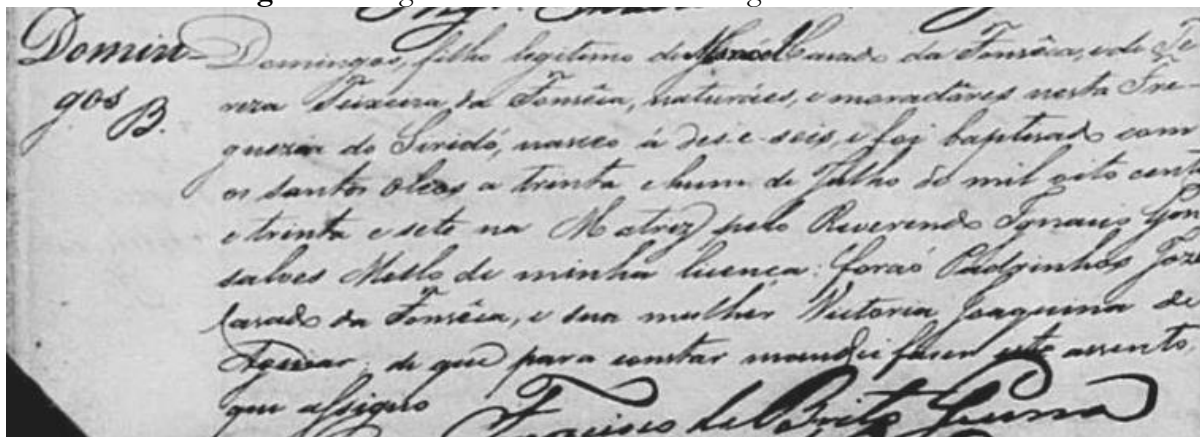 Domin-
gos
B.
Domingos, filho legitimo de Manoel da Fonsêca, e de Te-
reza Teixeira da Fonsêca, naturáes, e moradôres nesta Fre-
guezia do Siridó, nasceo á des e seis, e foi baptisado com
os Santos Oleos a trinta e hum de Julho de mil oito centos
e trinta e sete na Matriz pelo Reverendo Ignacio Gon-
salves Mello de minha licença: forão Padrinhos Jozé
da Fonsêca, e sua mulher Victoria Joaquina de
de que para constar mandei fazer este assento,
que assigno
Francisco de Brito Guerra